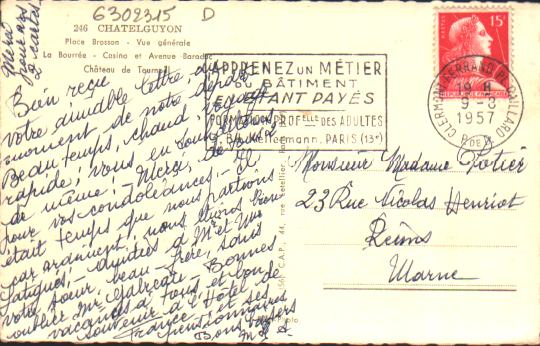 6302315 D
246 CHATELGUYON
Place Brosson - Vue générale
La Bourrée - Casino et Avenue Baraduc
Château de Tournoël
Merci
pour nos
Bien reçu
votre aimable lettre au
moment de notre départ
Beau temps, chaud, voyage
rapide; vous en souhaitons
de même; - Merci, de
pour vos condoléances. - Il
était temps que nous partions
car vraiment, nous étions bien
fatigués, - amitiés à Mr et Mme
votre sœur, beau-frère, sans
oublier Mr. - Bonnes
vacances à tous et bon
souvenir à l'Hôtel de
France et ses
pensionnaires
Bons baisers
APPRENEZ UN MÉTIER
DU BÂTIMENT
EN ÉTANT PAYÉS
FORMATION PROFELLE DES ADULTES
Kellermann, PARIS (13e)
15F
POSTES
CLERMONT-FERRAND PL. GAILLARD
18 H
9-3
1957
P. DE D.
Monsieur Madame Potier
23 Rue Nicolas Henriot
Reims
Marne
C.A.P., 44, rue Letellier,
Photo